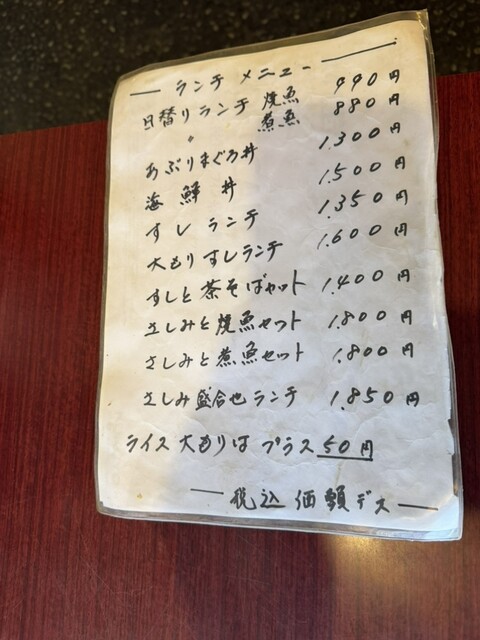 ランチ メニュー
日替りランチ 焼魚 990円
〃 煮魚 880円
あぶりまぐろ丼 1.300円
海鮮丼 1.500円
すしランチ 1.350円
大もりすしランチ 1.600円
すしと茶そばセット 1.400円
さしみと焼魚セット 1.800円
さしみと煮魚セット 1.800円
さしみ盛合せランチ 1.850円
ライス大もりはプラス50円
税込価額デス